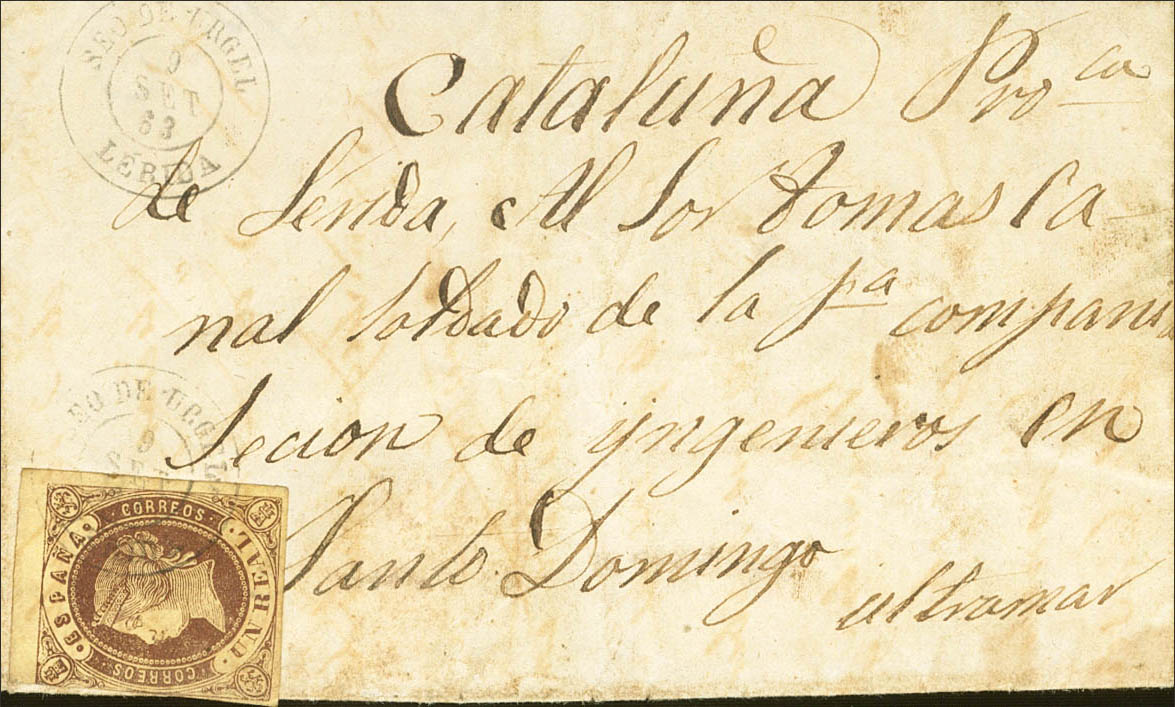 SEO DE URGEL
9
SET
63
LERIDA
Cataluña Pro^ca
de Lerida, Al Sor tomas Ca
nal soldado de la p^a compani
Secion de yngenieros en
Santo Domingo
ultramar
SEO DE URGEL
9
SET
CORREOS
ESPAÑA
UN REAL
CORREOS